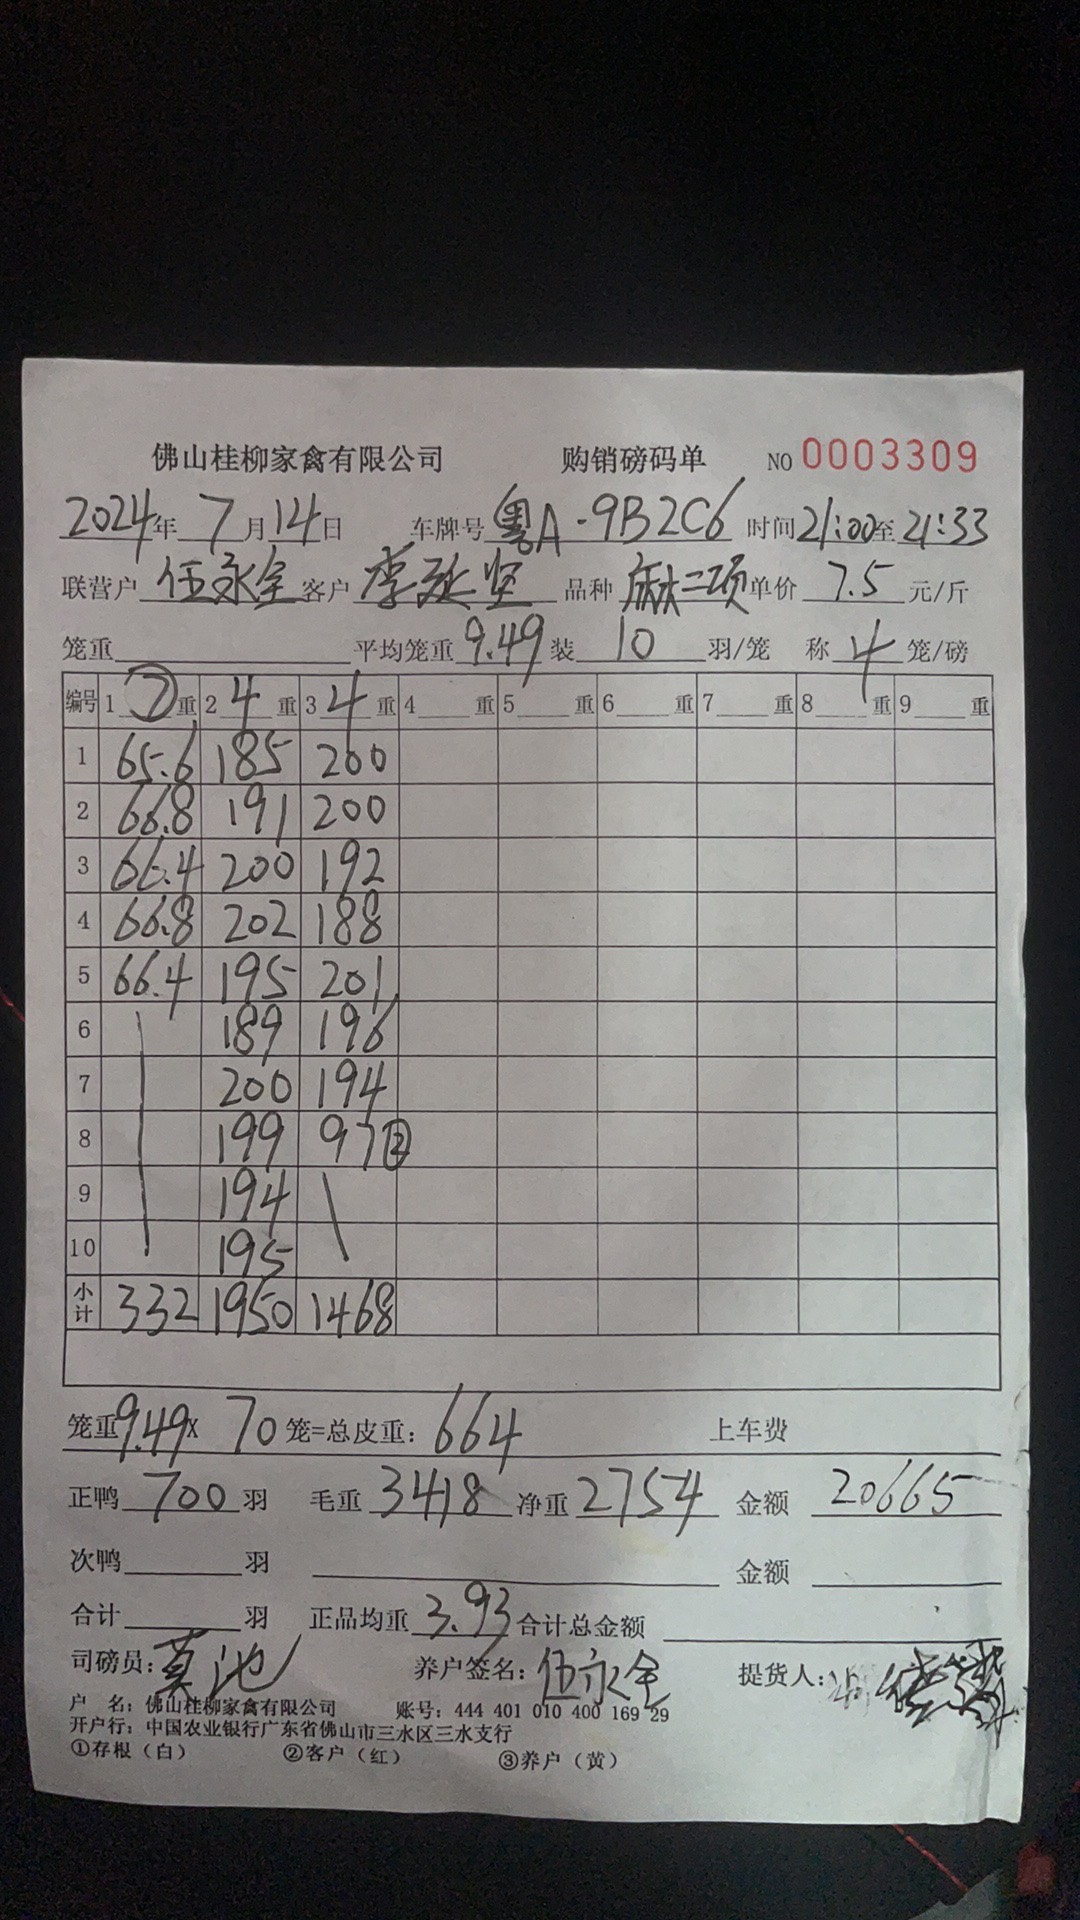 佛山桂柳家禽有限公司 购销磅码单 NO 0003309
2024年7月14日 车牌号 粤A-9B2C6 时间21:00至21:33
联营户 伍永全 客户 李延坚 品种 麻二项 单价 7.5 元/斤
笼重 平均笼重 9.49 装 10 羽/笼 称 4 笼/磅
编号 1 ⑦ 重 2 4 重 3 4 重 4 重 5 重 6 重 7 重 8 重 9 重
1 65.6 185 200
2 66.8 191 200
3 66.4 200 192
4 66.8 202 188
5 66.4 195 201
6 189 196
7 200 194
8 199 97②
9 194
10 195
小计 332 1950 1468
笼重9.49X 70 笼=总皮重: 664 上车费
正鸭 700 羽 毛重 3418 净重 2754 金额 20665
次鸭 羽 金额
合计 羽 正品均重 3.93 合计总金额
司磅员: 莫池 养户签名: 伍永全 提货人:
户 名: 佛山桂柳家禽有限公司 账号: 444 401 010 400 169 29
开户行: 中国农业银行广东省佛山市三水区三水支行
①存根(白) ②客户(红) ③养户(黄)